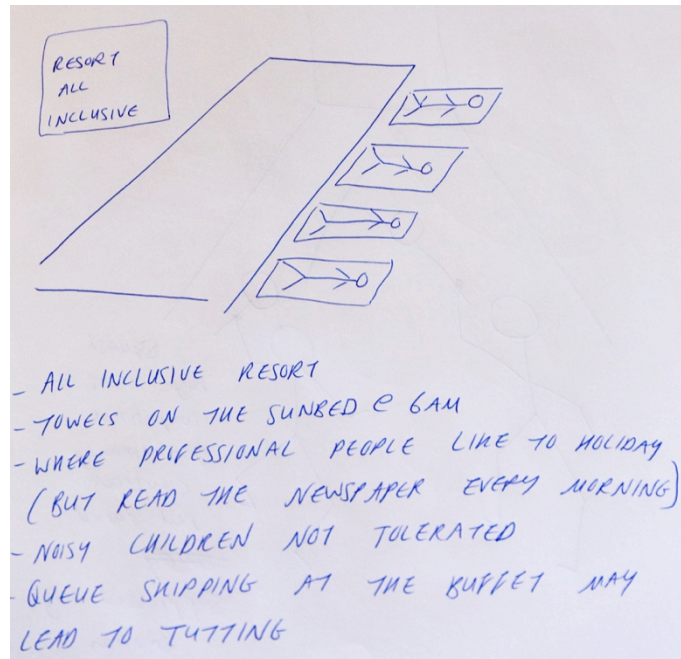 RESORT
ALL
INCLUSIVE
- ALL INCLUSIVE RESORT
- TOWELS ON THE SUNBED @ 6AM
- WHERE PROFESSIONAL PEOPLE LIKE TO HOLIDAY
(BUT READ THE NEWSPAPER EVERY MORNING)
- NOISY CHILDREN NOT TOLERATED
- QUEUE SKIPPING AT THE BUFFET MAY
LEAD TO TUTTING